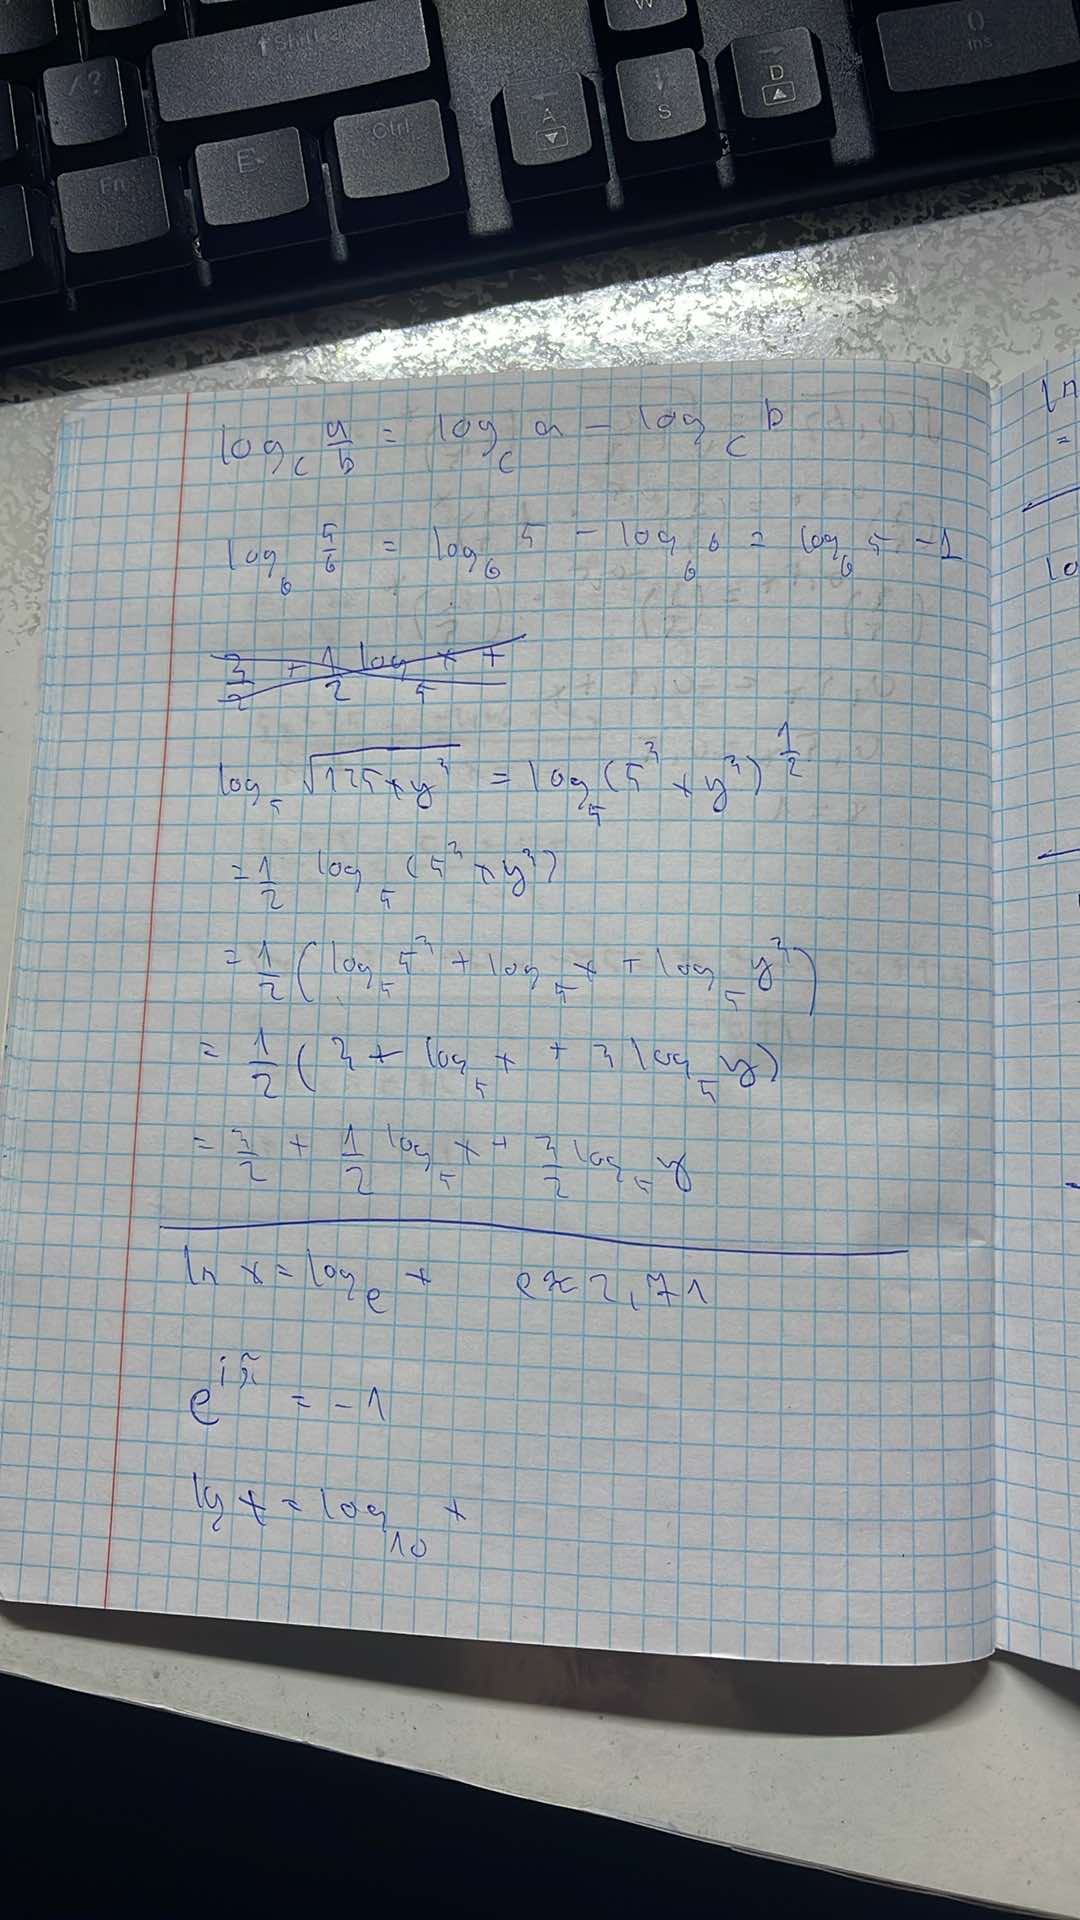 Shift
W
?
Ctrl
A
S
D
0
Ins
Fn
E
log_c a/b = log_c a - log_c b
log_6 5/6 = log_6 5 - log_6 6 = log_6 5 - 1
3/2 + 1/2 log_5 x +
log_5 √(125xy^3) = log_5 (5^3 x y^3)^(1/2)
= 1/2 log_5 (5^3 x y^3)
= 1/2 (log_5 5^3 + log_5 x + log_5 y^3)
= 1/2 (3 + log_5 x + 3 log_5 y)
= 3/2 + 1/2 log_5 x + 3/2 log_5 y
ln x = log_e x e ≈ 2,71
e^(iπ) = -1
lg x = log_10 x
ln
=
lo